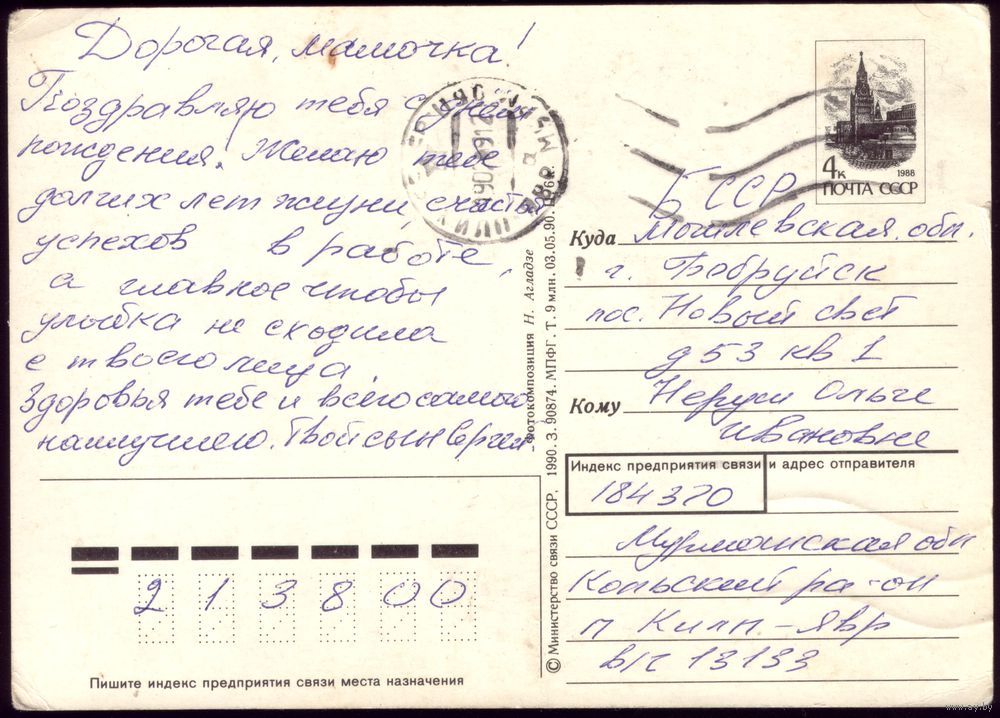 Дорогая, мамочка!
Поздравляю тебя с днём
рождения! Желаю тебе
долгих лет жизни, счастья
успехов в работе,
а главное чтобы
улыбка не сходила
с твоего лица.
Здоровья тебе и всего самого
наилучшего. Твой сын Сергей
4к
1988
ПОЧТА СССР
БССР
Куда Могилевская. обл.
г. Бобруйск
пос. Новый свет
д 53 кв 1
Кому Ольге
Ивановне
Индекс предприятия связи и адрес отправителя
184320
Мурманская обл
Кольский ра-он
п Килп-Явр
в/ч 13133
213800
Пишите индекс предприятия связи места назначения
Фотокомпозиция Н. Агладзе
© Министерство связи СССР. 1990. З. 90874. МПФГ. Т. 9 млн. 03.05.90. Ц. 6к.
www.ay.by